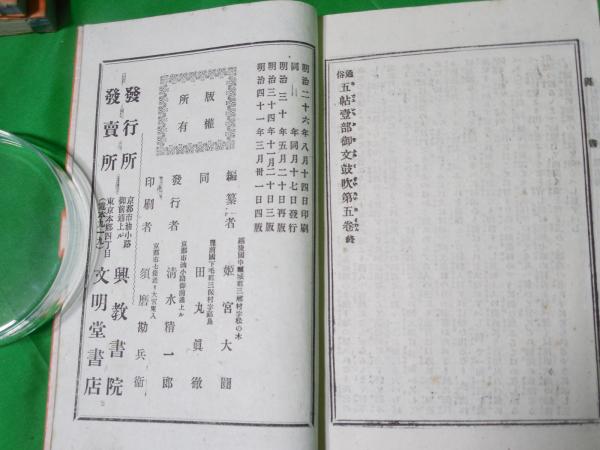 通俗五帖壹部御文鼓吹第五卷終
明治二十六年八月十四日印刷
同年同月十七日發行
明治三十年五月二十日再版
明治三十四年十一月二十日三版
明治四十一年三月卅一日四版
版權所有
編纂者 姫宮大圓
豊前國下毛郡三保村字福島
同 田丸眞徹
京都市油小路御前通上ル
發行者 清水精一郎
印刷者 須磨勘兵衛
發行所 京都市油小路御前通上ル 興教書院
發賣所 東京本郷四丁目 文明堂書店